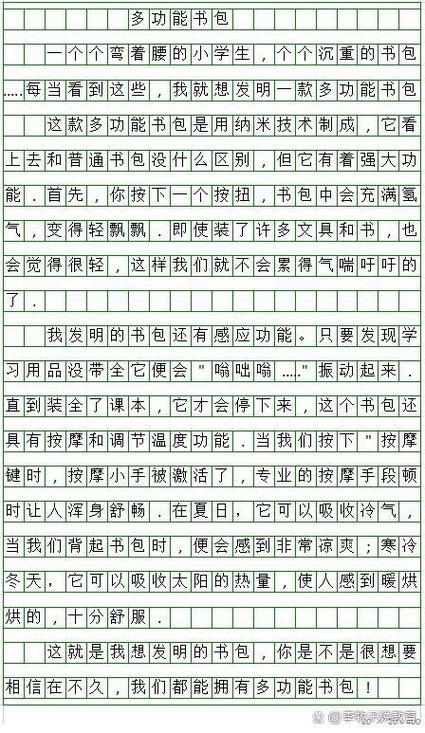 多功能书包
一个个弯着腰的小学生，个个沉重的书包
.....每当看到这些，我就想发明一款多功能书包
这款多功能书包是用纳米技术制成，它看
上去和普通书包没什么区别，但它有着强大功
能．首先，你按下一个按扭，书包中会充满氢
气，变得轻飘飘．即使装了许多文具和书，也
会觉得很轻，这样我们就不会累得气喘吁吁的
了．
我发明的书包还有感应功能。只要发现学
习用品没带全它便会"嗡咄嗡....."振动起来．
直到装全了课本，它才会停下来，这个书包还
具有按摩和调节温度功能．当我们按下"按摩
键时，按摩小手被激活了，专业的按摩手段顿
时让人浑身舒畅．在夏日，它可以吸收冷气，
当我们背起书包时，便会感到非常凉爽；寒冷
冬天，它可以吸收太阳的热量，使人感到暖烘
烘的，十分舒服．
这就是我想发明的书包，你是不是很想要
相信在不久，我们都能拥有多功能书包！